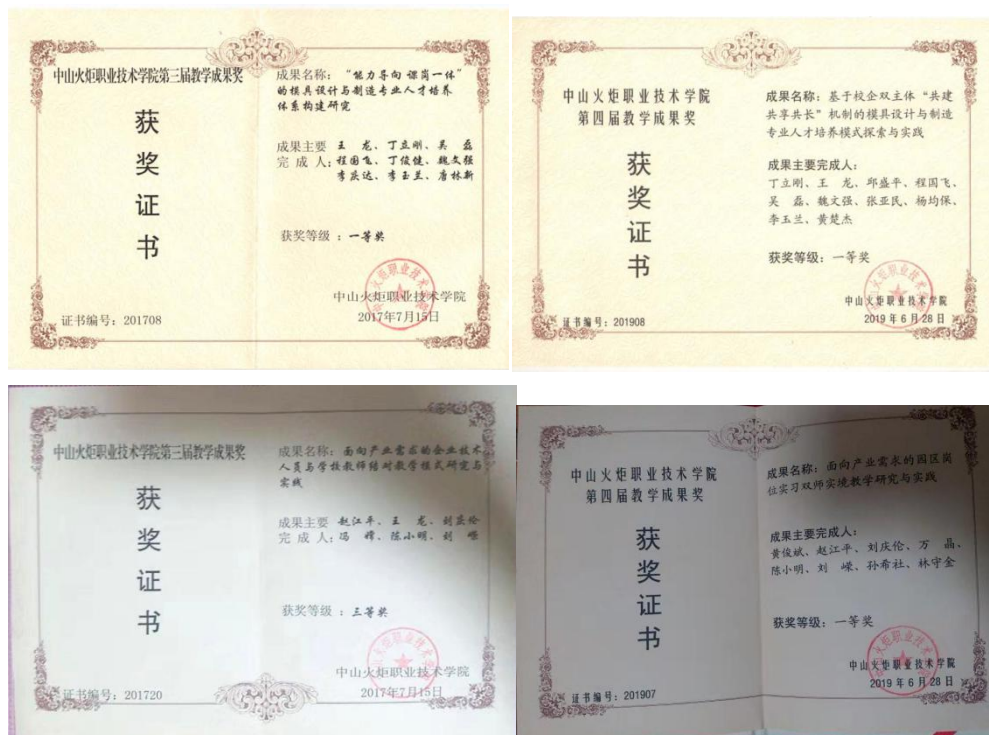 中山火炬职业技术学院第三届教学成果奖
获
奖
证
书
证书编号：201708
成果名称：“能力导向 课岗一体”
的模具设计与制造专业人才培养
体系构建研究
成果主要 王 龙、丁立刚、吴 磊
完 成 人：程国飞、丁俊健、魏文强
李庆达、李玉兰、唐林新
获奖等级：一等奖
中山火炬职业技术学院
2017年7月15日
中山火炬职业技术学院
第四届教学成果奖
获
奖
证
书
证书编号：201908
成果名称：基于校企双主体“共建
共享共长”机制的模具设计与制造
专业人才培养模式探索与实践
成果主要完成人：
丁立刚、王 龙、邱盛平、程国飞、
吴 磊、魏文强、张亚民、杨均保、
李玉兰、黄楚杰
获奖等级：一等奖
中山火炬职业技术学院
2019年6月28日
中山火炬职业技术学院第三届教学成果奖
获
奖
证
书
证书编号：201720
成果名称：面向产业需求的企业技术
人员与学校教师结对教学模式研究与
实践
成果主要 赵江平、王 龙、刘庆伦
完 成 人：冯 嫦、陈小明、刘 嵘
获奖等级：三等奖
中山火炬职业技术学院
2017年7月15日
中山火炬职业技术学院
第四届教学成果奖
获
奖
证
书
证书编号：201907
成果名称：面向产业需求的园区岗
位实习双师实境教学研究与实践
成果主要完成人：
黄俊斌、赵江平、刘庆伦、万 晶、
陈小明、刘 嵘、孙希社、林守金
获奖等级：一等奖
中山火炬职业技术学院
2019年6月28日